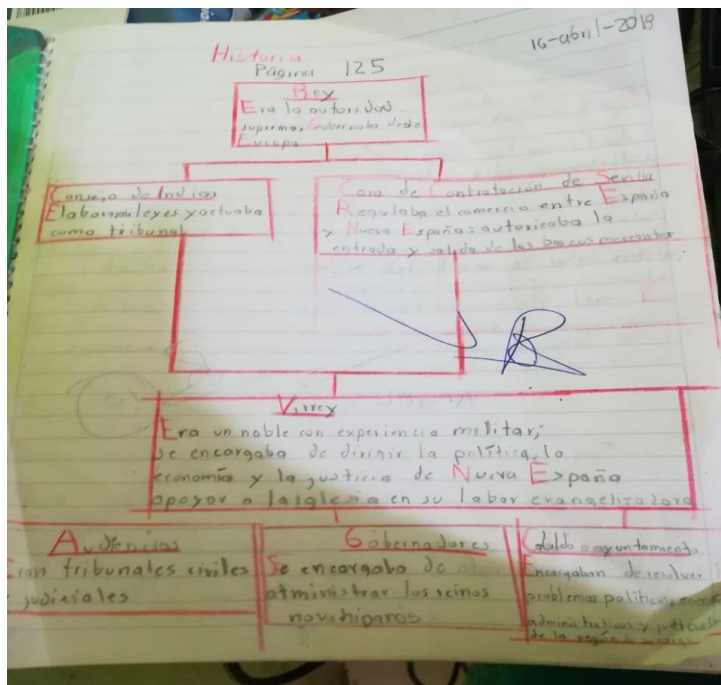 16-abril-2019
Historia
Página 125
Rey
Era la autoridad
suprema, Gobernaba desde
Europa
Consejo de Indias
Elaboraba leyes y actuaba
como tribunal
Casa de Contratación de Sevilla
Regulaba el comercio entre España
y Nueva España: autorizaba la
entrada y salida de los barcos mercantes
Virrey
Era un noble con experiencia militar;
se encargaba de dirigir la política, la
economía y la justicia de Nueva España
apoyar a la iglesia en su labor evangelizadora
Audiencias
Eran tribunales civiles
y judiciales
Gobernadores
Se encargaba de
administrar los reinos
novohiparos
Cabildo o ayuntamiento
Encargaban de resolver
problemas políticos,
administrativos y judiciales
de la región